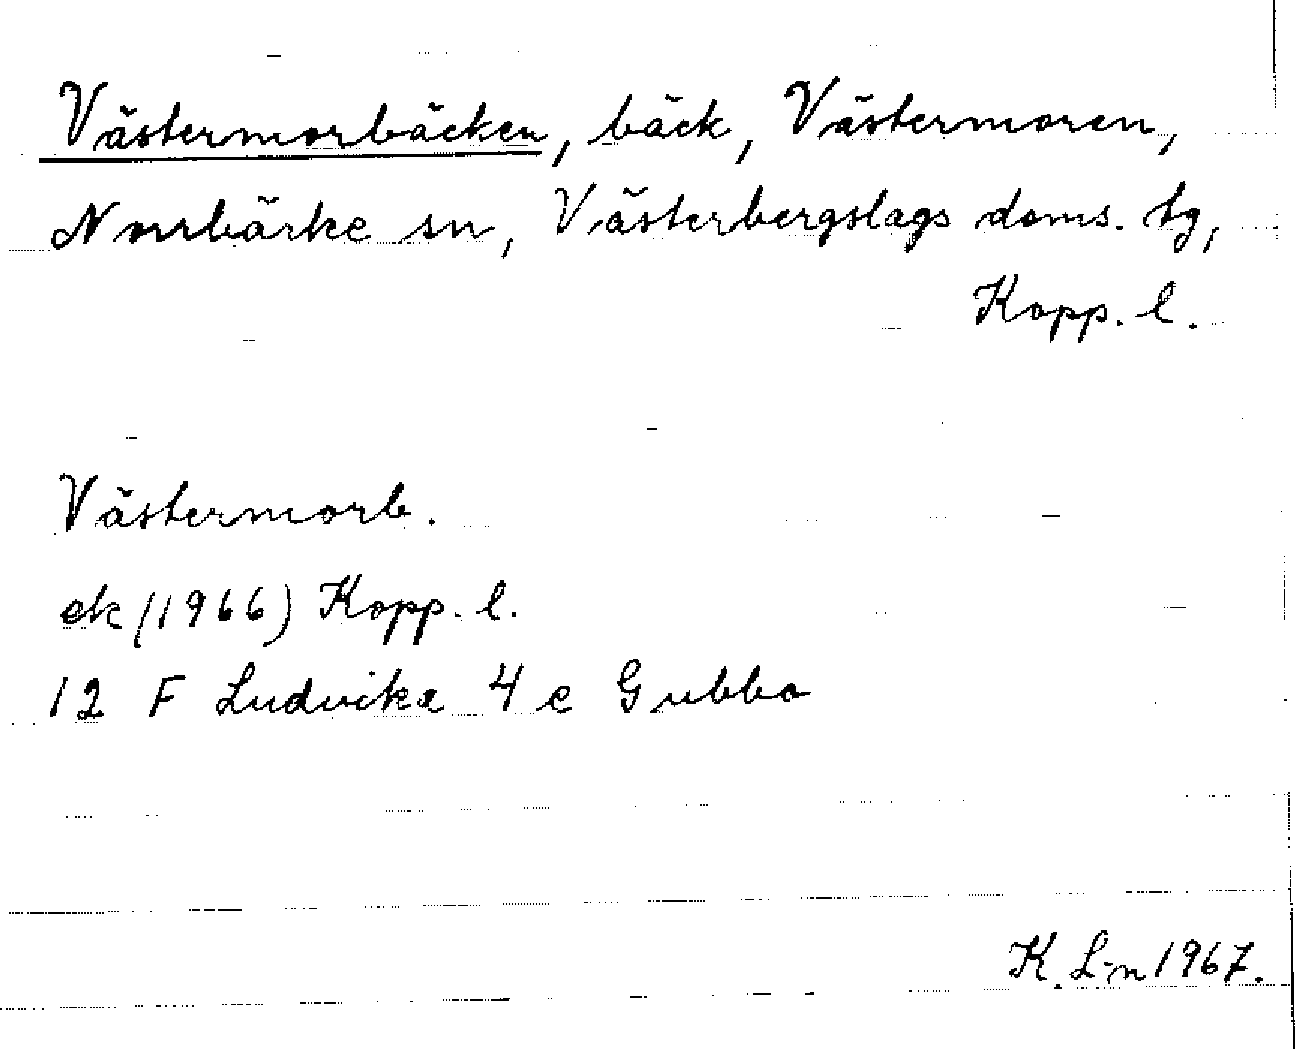 Västermorbäcken, bäck, Västermoren,
Norrbärke sn, Västerbergslags doms. tg,
Kopp. l.
Västermorb.
ek (1966) Kopp. l.
12 F Ludvika 4 e Gubbo
K. L-n 1967.